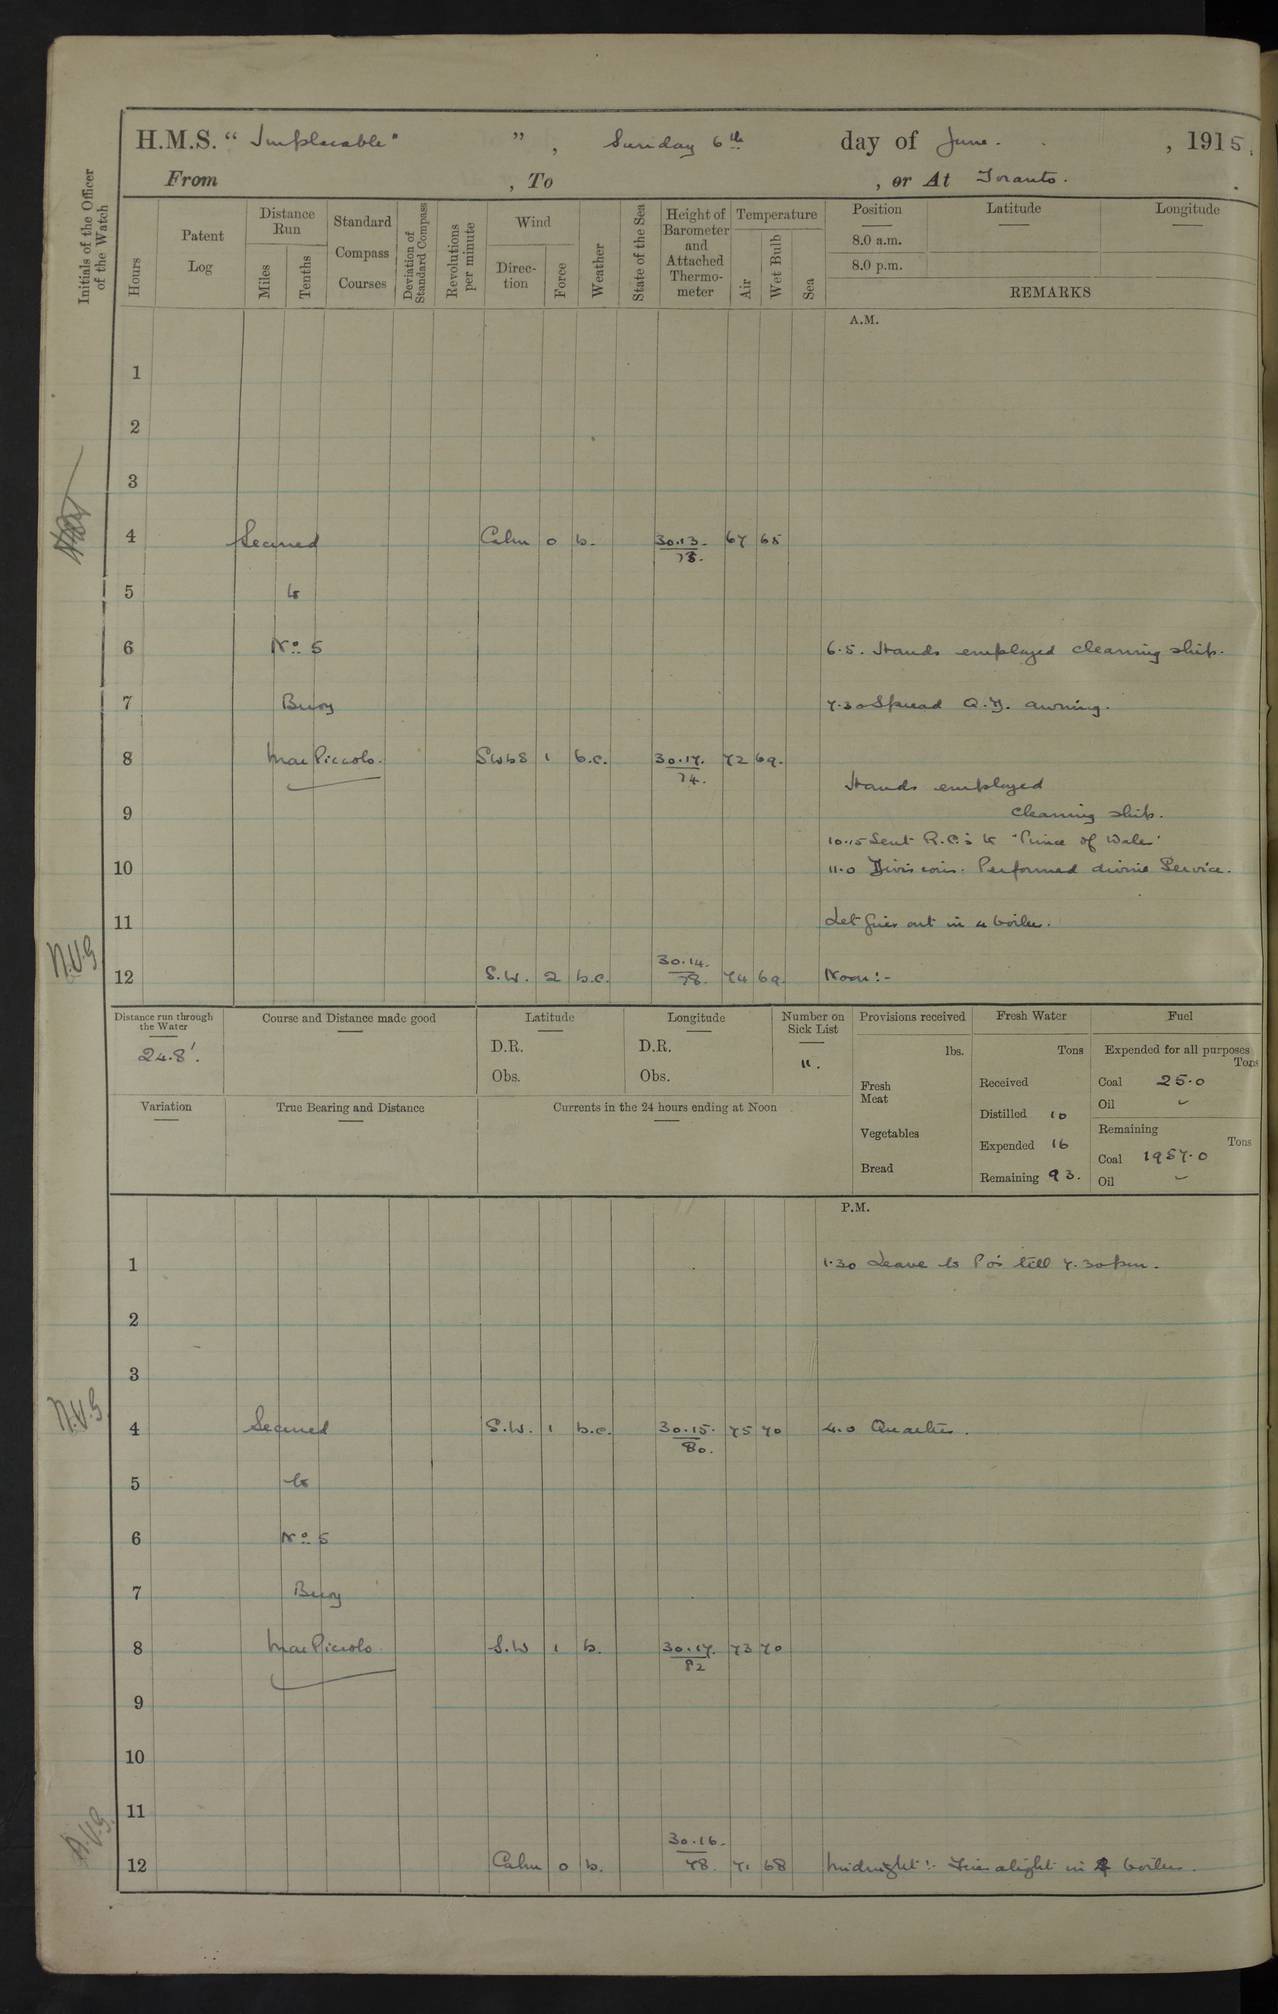 H.M.S. "Implacable" ", Sunday 6th day of June. , 1915.
From , To , or At Taranto.
Initials of the Officer of the Watch
Hours
Patent Log
Distance Run
Miles
Tenths
Standard Compass Courses
Deviation of Standard Compass
Revolutions per minute
Wind
Direc-tion
Force
Weather
State of the Sea
Height of Barometer and Attached Thermo-meter
Temperature
Air
Wet Bulb
Sea
Position Latitude Longitude
8.0 a.m.
8.0 p.m.
REMARKS
A.M.
1
2
3
4 Secured Calm 0 b. 30.13. 67 65
73.
5 to
6 No. 5 6.5. Hands employed cleaning ship.
7 Buoy 7.30 Spread Q.D. awning.
8 Mar Piccolo. SWbS 1 b.c. 30.17. 72 69.
74.
Hands employed
9 cleaning ship.
10.15 Sent R.C.s to "Prince of Wales"
10 11.0 Divisions. Performed divine Service.
11 Let fires out in 4 boilers.
N.V.G
30.14.
12 S.W. 2 b.c. 78. 74 69. Noon:-
Distance run through the Water
24.8'.
Course and Distance made good
Latitude
D.R.
Obs.
Longitude
D.R.
Obs.
Number on Sick List
11.
Provisions received
lbs.
Fresh Meat
Vegetables
Bread
Fresh Water
Tons
Received
Distilled 10
Expended 16
Remaining 93.
Fuel
Expended for all purposes
Tons
Coal 25.0
Oil ~
Remaining
Tons
Coal 1957.0
Oil ~
Variation
True Bearing and Distance
Currents in the 24 hours ending at Noon
P.M.
1 1.30 Leave to P.O's till 7.30 pm.
2
3
N.V.G
4 Secured S.W. 1 b.c. 30.15. 75 70 4.0 Quarters.
80.
5 to
6 No. 5
7 Buoy
8 Mar Piccolo S.W 1 b. 30.17. 73 70
82
9
10
11
N.V.G.
30.16.
12 Calm 0 b. 78. 71 68 Midnight:- Fires alight in boilers.